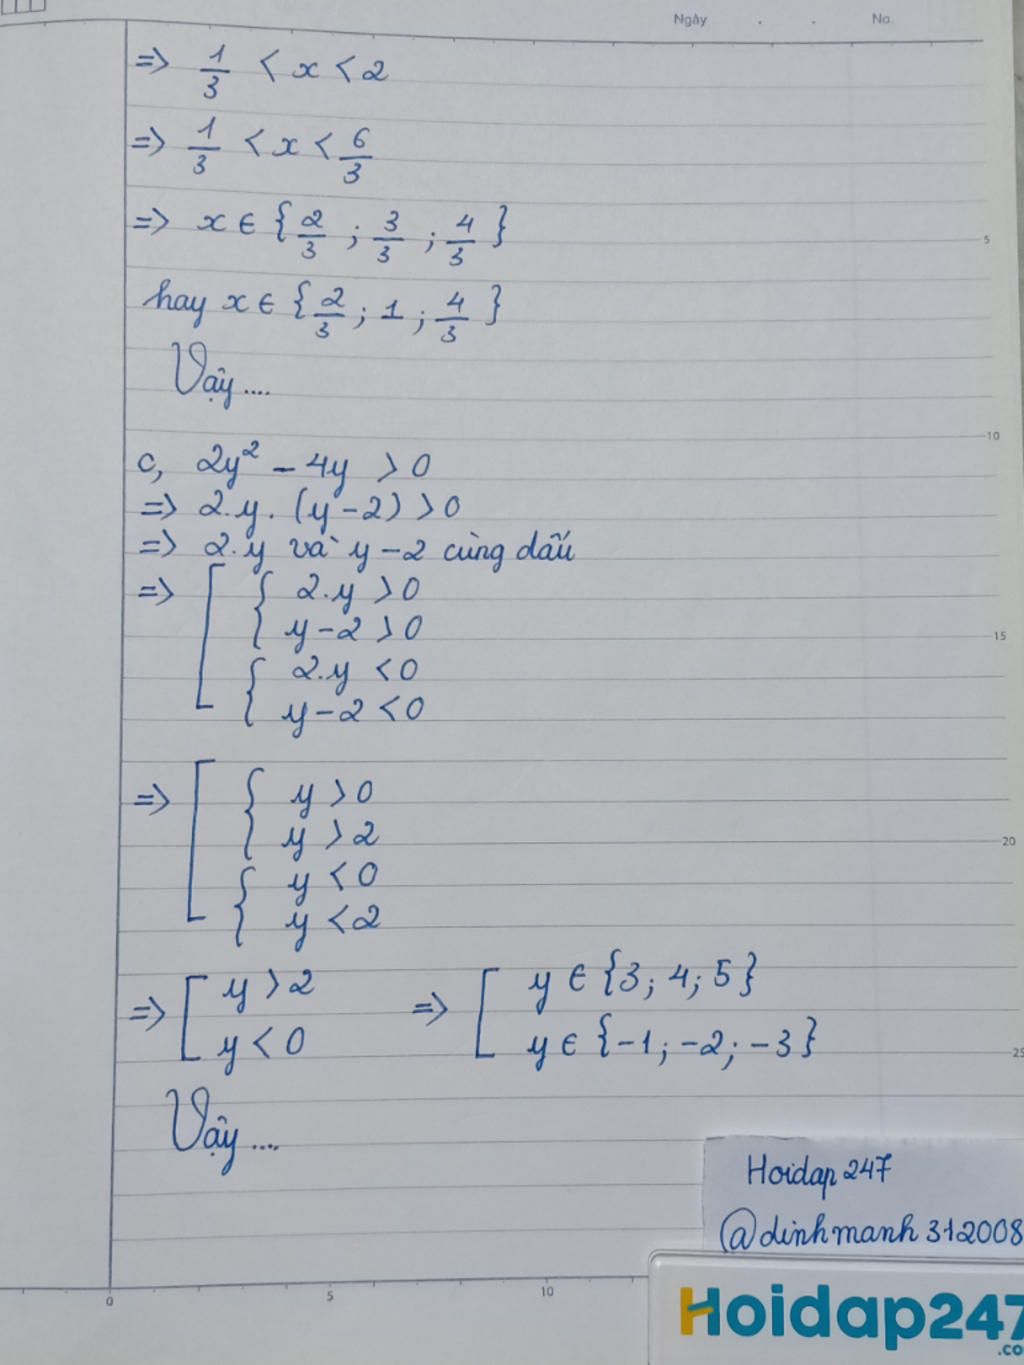 Ngày . . No.
=> 1/3 < x < 2
=> 1/3 < x < 6/3
=> x ∈ {2/3 ; 3/3 ; 4/3}
hay x ∈ {2/3 ; 1 ; 4/3}
Vậy ....
c, 2y² - 4y > 0
=> 2.y.(y-2) > 0
=> 2.y và y-2 cùng dấu
=> [ { 2.y > 0
y-2 > 0
{ 2.y < 0
y-2 < 0
=> [ { y > 0
y > 2
{ y < 0
y < 2
=> [ y > 2 => [ y ∈ {3; 4; 5}
y < 0 y ∈ {-1; -2; -3}
Vậy ....
5
10
15
20
25
Hoidap 247
@dinhmanh312008
0 5 10
Hoidap247
.co